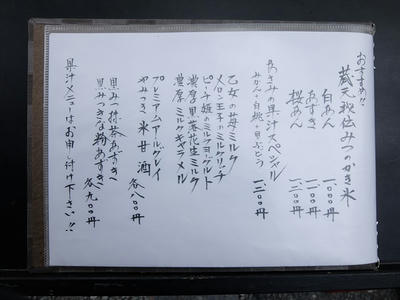 おすすめ!!
蔵元秘伝みつのかき氷
白あん 一、〇〇〇円
あずき 一、一〇〇円
桜あん 一、二〇〇円
あさみの果汁スペシャル
みかん+白桃+黒ぶどう 一、二〇〇円
乙女の苺ミルク
メロン王子のミルクリッチ
ピーチ姫のミルクヨーグルト
濃厚黒落花生ミルク
濃厚ミルクキャラメル
プレミアムアールグレイ
やみつき氷甘酒 各八〇〇円
黒みつ抹茶あずき
黒みつきな粉あずき 各九〇〇円
果汁メニューはお申し付け下さい!!